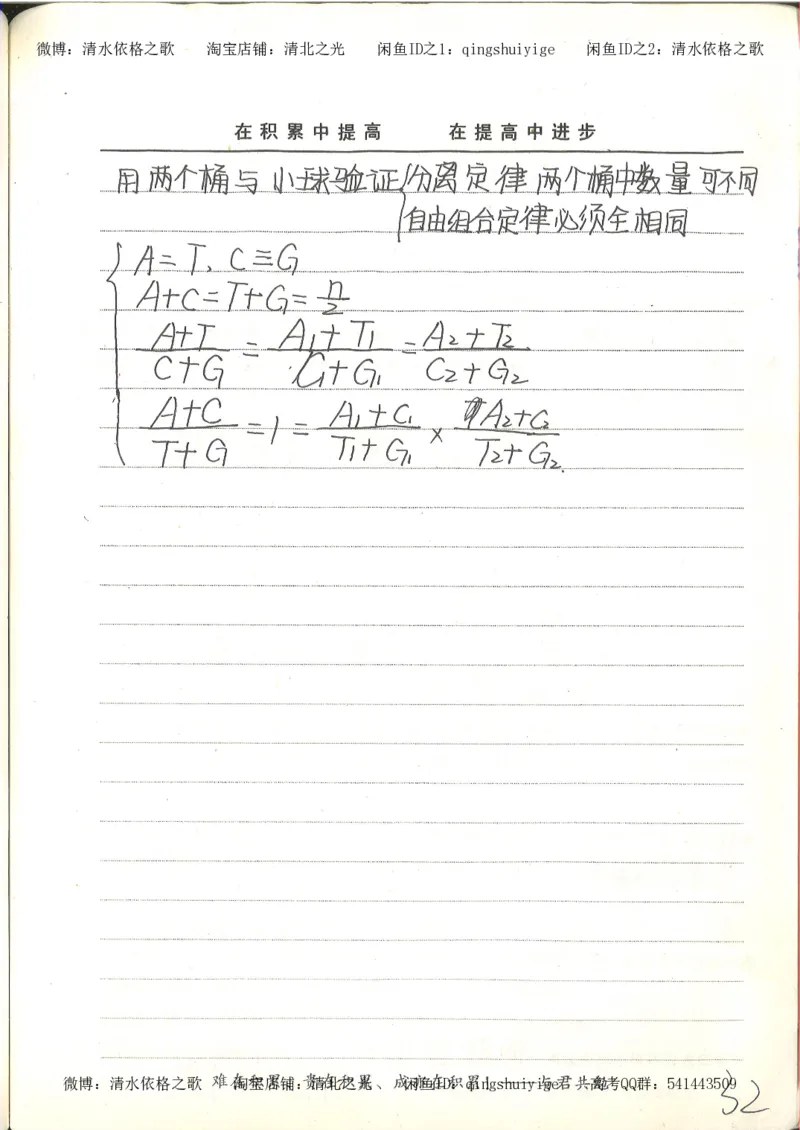 微博：清水依格之歌 淘宝店铺：清北之光 闲鱼ID之1：qingshuiyige 闲鱼ID之2：清水依格之歌
在积累中提高 在提高中进步
用两个桶与小球验证{分离定律两个桶中数量可不同
自由组合定律必须全相同
A=T、C≡G
A+C=T+G=n/2
(A+T)/(C+G)=(A₁+T₁)/(C₁+G₁)=(A₂+T₂)/(C₂+G₂)
(A+C)/(T+G)=1=(A₁+C₁)/(T₁+G₁)×(A₂+C₂)/(T₂+G₂)
微博：清水依格之歌 淘宝店铺：清北之光 闲鱼ID：qingshuiyige 高考QQ群：541443509
32